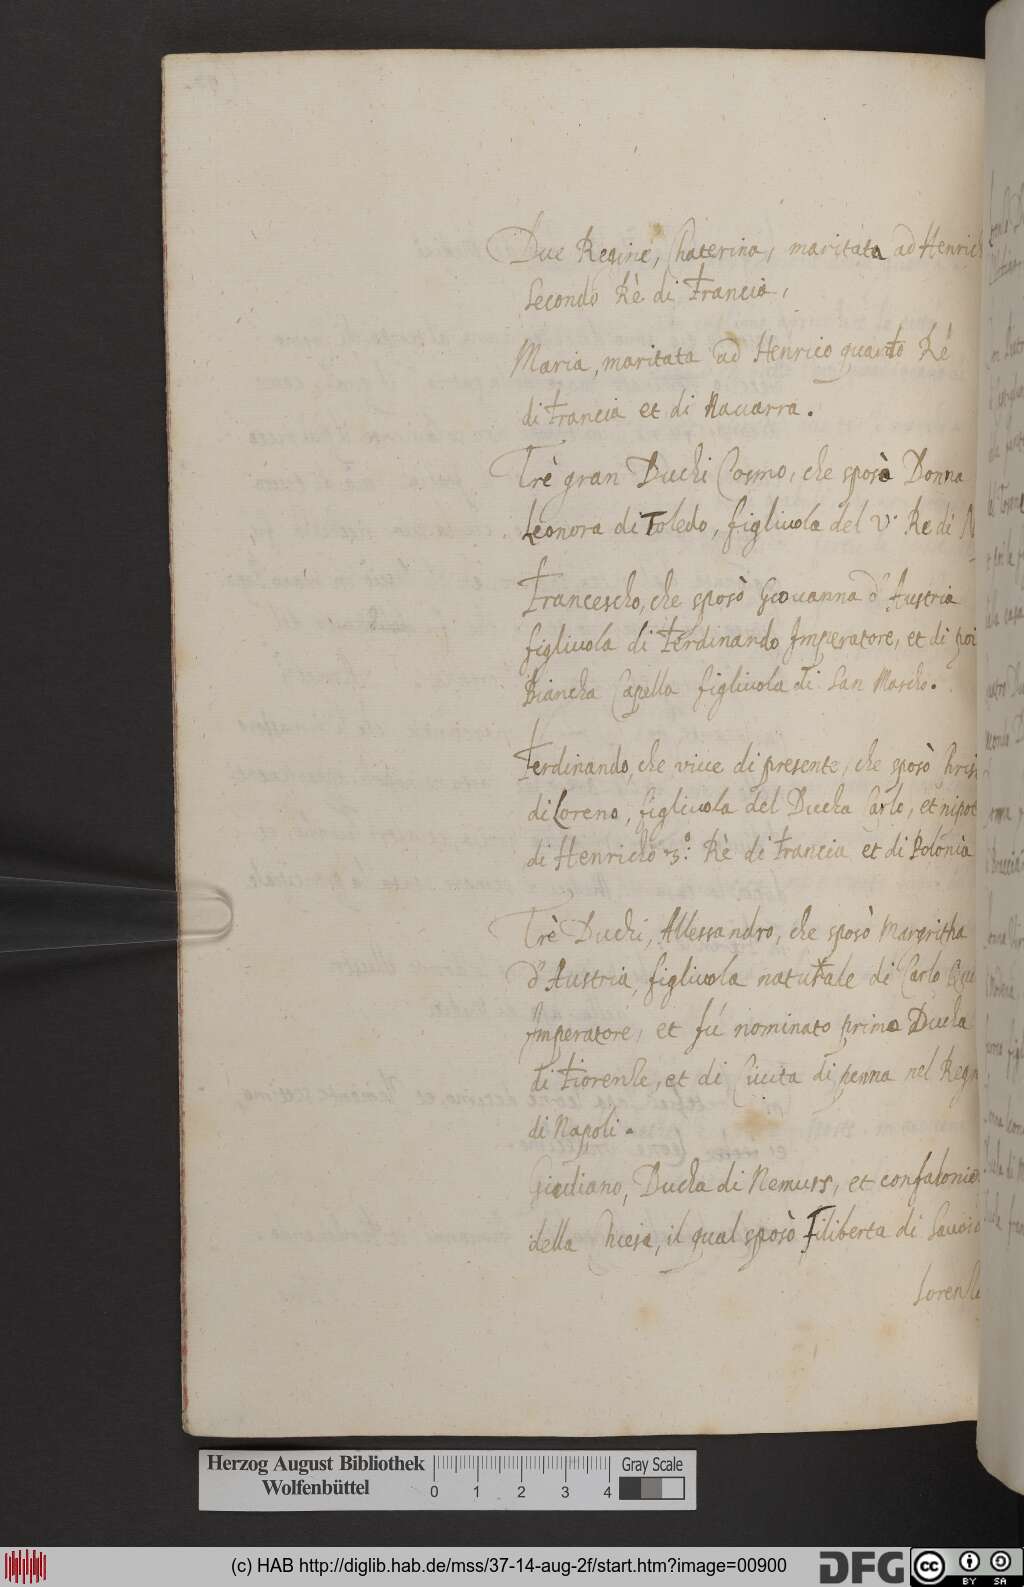 Due Regine, Chaterina, maritata ad Henrich
Secondo Rè di Francia,
Maria, maritata ad Henrico quarto Rè
di Francia et di Nauarra.
Trè gran Duchi Cosmo, che sposò Donna
Leonora di Toledo, figliuola del V. Re di N
Francescho, che sposò Giouanna d'Austria
figliuola di Ferdinando Imperatore, et di poi
Biancha Capella figliuola di San Marcho.
Ferdinando, che viue di presente, che sposò Chris
di Loreno, figliuola del Ducha Carlo, et nipot
di Henricho 3º: Rè di Francia et di Polonia
Trè Duchi, Allessandro, che sposò Margritha
d'Austria, figliuola naturale di Carlo Qui
Imperatore, et fú nominato primo Ducha
di Fiorenze, et di Ciuita di penna nel Regn
di Napoli.
Giuliano, Ducha di Nemurs, et confalonie
della Chiesa, il qual sposò Filiberta di Sauoia
Lorenzo
Herzog August Bibliothek
Wolfenbüttel
0 1 2 3 4
Gray Scale
(c) HAB http://diglib.hab.de/mss/37-14-aug-2f/start.htm?image=00900
DFG
cc BY SA